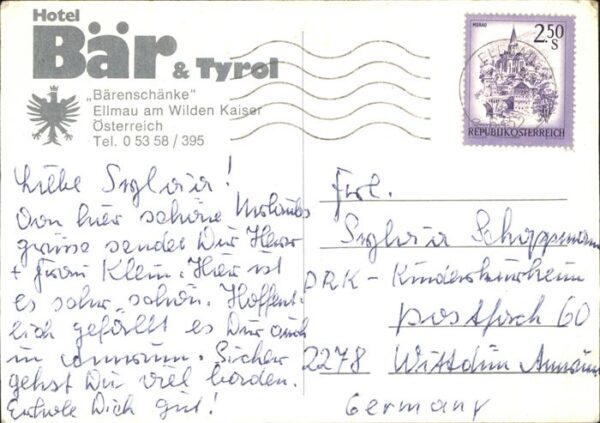 Hotel
Bär & Tyrol
„Bärenschänke“
Ellmau am Wilden Kaiser
Österreich
Tel. 0 53 58 / 395
MURAU
2.50
S
REPUBLIK ÖSTERREICH
Liebe Sylvia!
Von hier schöne Urlaubs
grüsse sendet Dir Herr
+ Frau Klein. Hier ist
es sehr schön. Hoffent
lich gefällt es Dir auch
in Amrum. Sicher
gehst Du viel baden.
Erhole Dich gut!
Frl.
Sylvia
DRK - Kinderkurheim
Postfach 60
2278 Wittdün Amrum
Germany